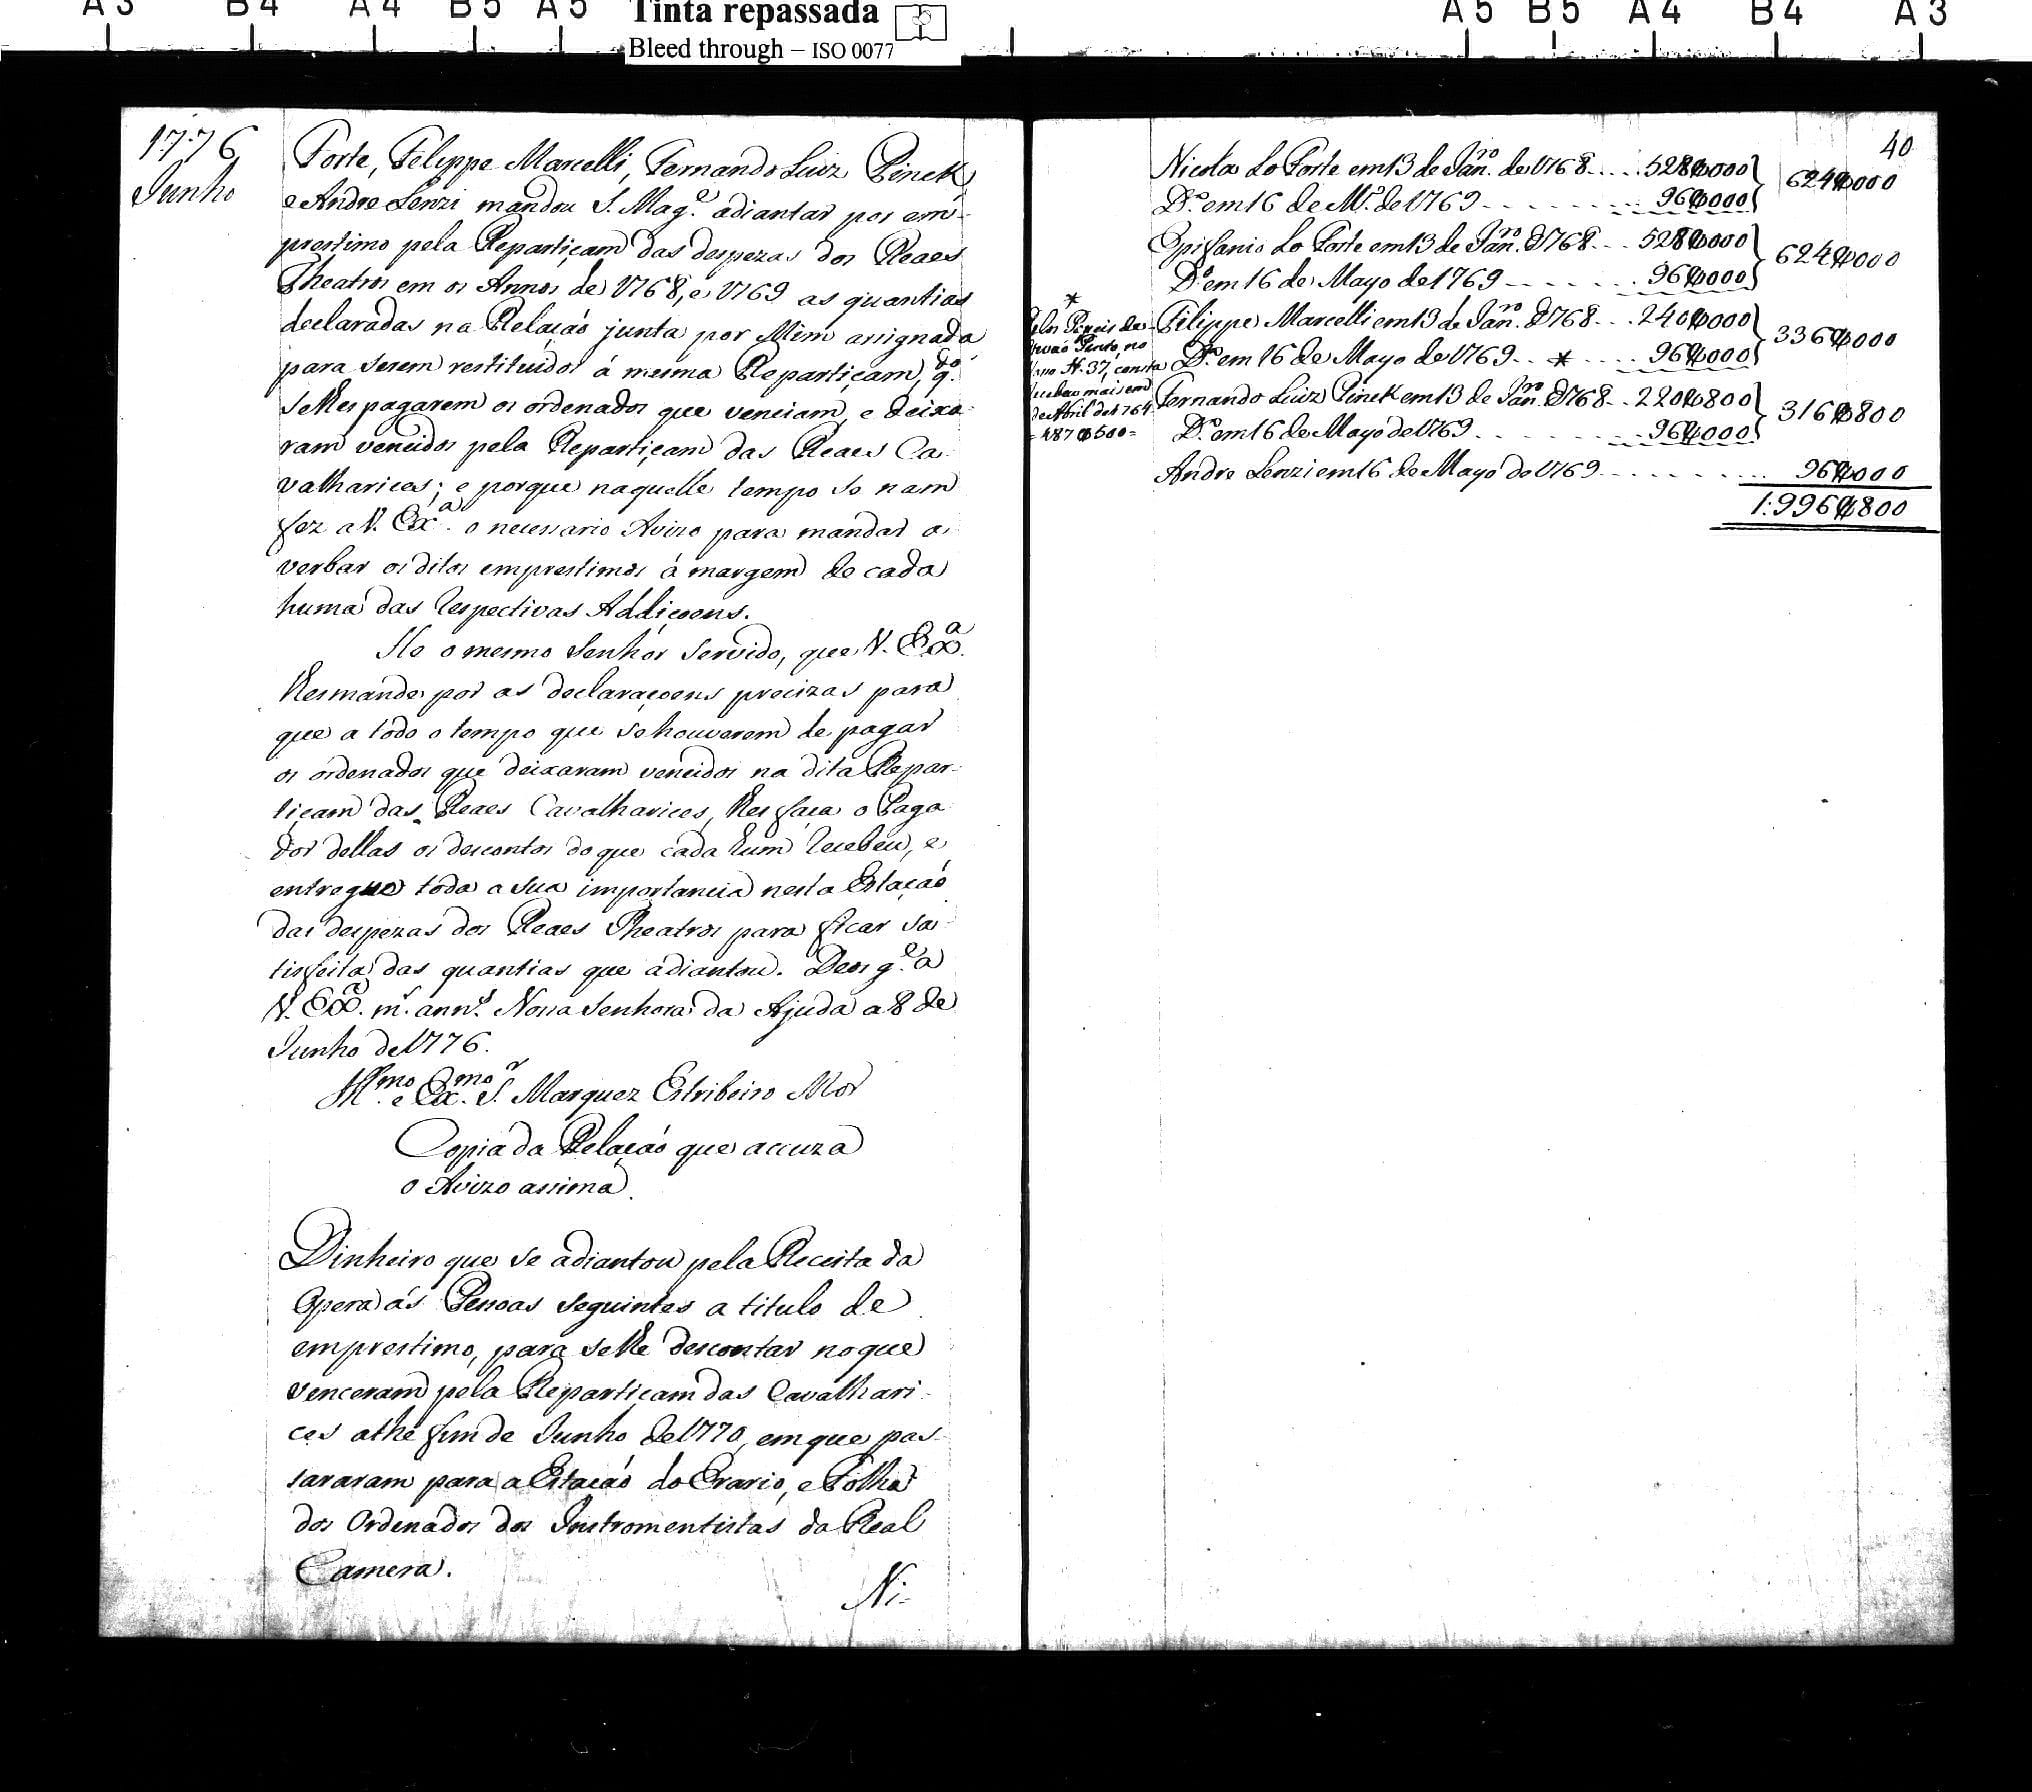 A3 B4 A4 B5 A5 Tinta repassada A5 B5 A4 B4 A3
Bleed through – ISO 0077
1776
Junho
Forte, Felippe Marcelli, Fernando Luiz Pinck
e Andre Lenzi mandou S. Mag.e adiantar por em-
prestimo pela Repartiçam das despezas dos Reaes
Theatros em os Annos de 1768, e 1769 as quantias
declaradas na Relaçaó junta por Mim assignada
para serem restituidos á mesma Repartiçam, q.do
se lhes pagarem os ordenados que venciam, e deixa-
ram vencidos pela Repartiçam das Reaes Ca-
valharices; e porque naquelle tempo se nam
fez a V. Ex.a o necessario Avizo para mandar a-
verbar os ditos emprestimos á margem de cada
huma das respectivas Addiçoens.
He o mesmo Senhor servido, que V. Ex.a
lhes mande por as declaraçoens precizas para
que a todo o tempo que se houverem de pagar
os ordenados que deixaram vencidos na dita Repar-
tiçam das Reaes Cavalharices, lhes faça o Paga-
dor dellas os descontos do que cada hum recebeu, e
entregue toda a sua importancia nesta Estaçaó
das despezas dos Reaes Theatros para ficar sa-
tisfeita das quantias que adiantou. Deos g.e a
V. Ex.a m.s ann.s Nossa Senhora da Ajuda a 8 de
Junho de 1776.
Ill.mo e Ex.mo S.r Marquez Estribeiro Mor
Copia da Relaçaó que accuza
o Avizo assima
Dinheiro que se adiantou pela Receita da
Opera ás Pessoas seguintes a titulo de
emprestimo, para se lhe descontar no que
venceram pela Repartiçam das Cavalhari-
ces athé fim de Junho de 1770, em que pas-
sararam para a Estaçaó do Erario, e Folha
dos Ordenados dos Instromentistas da Real
Camera.
Ni-
40
Nicola Lo Forte em 13 de Jan.ro de 1768 .... 528$000 } 624$000
D.o em 16 de M.o de 1769 - - - - - - - 96$000
Epifanio Lo Forte em 13 de Jan.ro d 1768 ... 528$000 } 624$000
D.o em 16 de Mayo de 1769 - - - - - - 96$000
Filippe Marcelli em 13 de Jan.ro d 1768 ... 240$000 } 336$000
D.o em 16 de Mayo de 1769 .. * .... 96$000
Fernando Luiz Pinck em 13 de Jan.ro d 1768 .. 220$800 } 316$800
D.o em 16 de Mayo de 1769 - - - - - - 96$000
Andre Lenzi em 16 de Mayo de 1769 - - - - - - - 96$000
1:996$800
*
no
N. 37, consta
mais em
de Abril de 1764
- 487$500 =